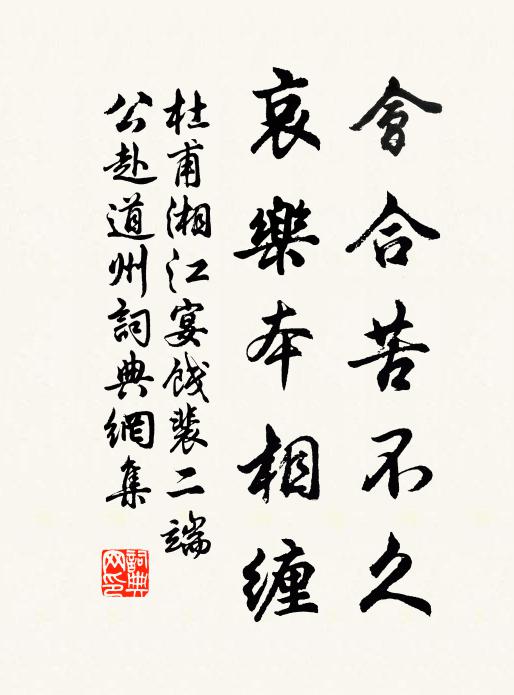 會合苦不久
哀樂本相纏
杜甫湘江宴餞裴二端
公赴道州詞典網集
詞典
网印